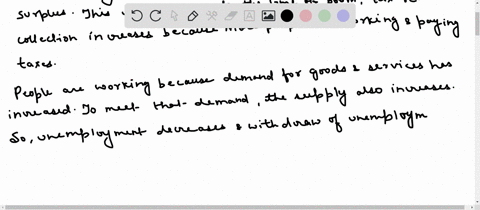 surplus. This
collection increases because working & paying
taxes.
People are working because demand for goods & services has
increased. To meet that demand, the supply also increases.
So, unemployment decreases & withdraw of unemploym